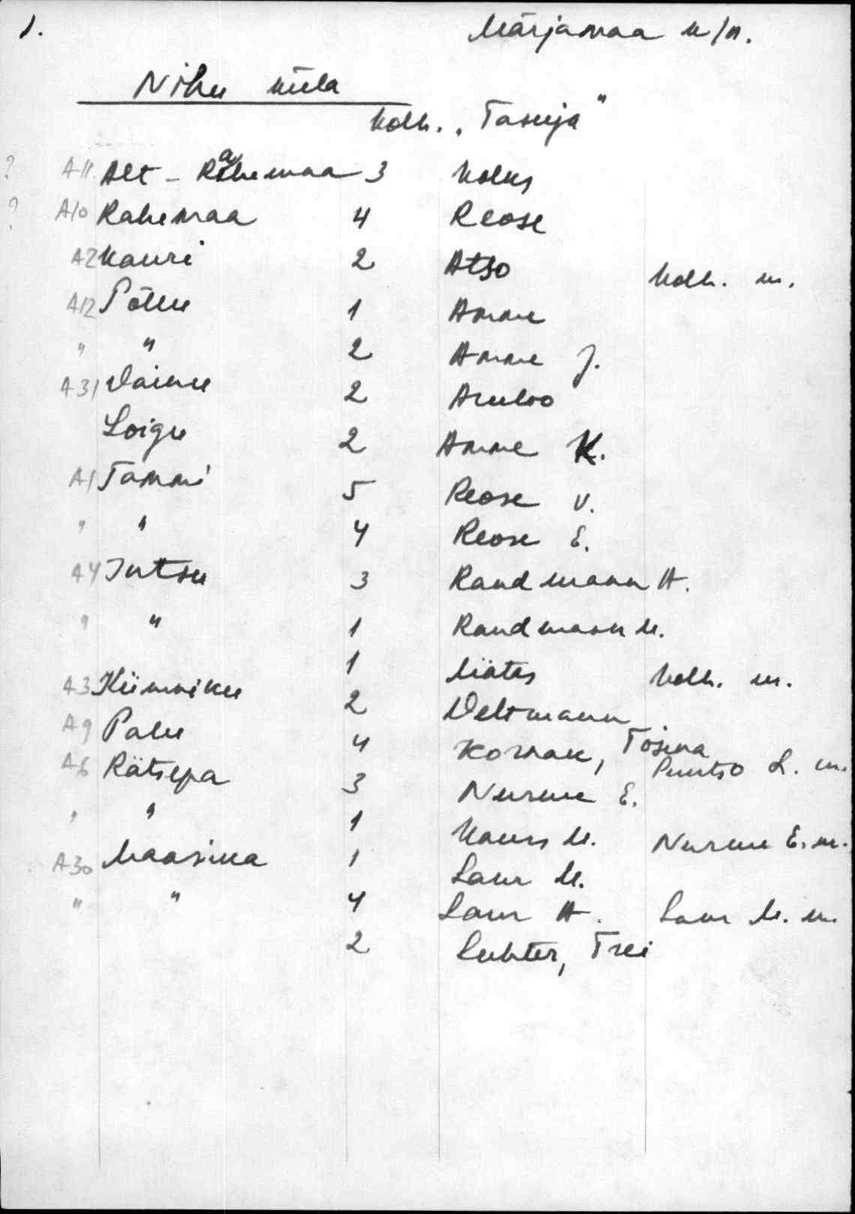 1. Märjamaa k/n.
Nihu küla
Kolh. „Tasuja"
? A11 Alt-Rahemaa 3 Kolus
? A10 Rahemaa 4 Reose
A2 Kauri 2 Atso Kolh. m.
A12 Põllu 1 Amme
" " 2 Amme J.
A31 Vainu 2 Aruloo
Loigu 2 Amme K.
A1 Tammi 5 Reose V.
" " 4 Reose E.
A4 Jutsu 3 Randmann A.
" " 1 Randmann M.
1 Mätas Kolh. m.
A3 Kiinviku 2 Veltmann
A9 Palu 4 Tosina
A6 Rätsepa 3 Nurme E. L. m.
" " 1 Kaurs M. Nurme E. m.
A30 Maasika 1 Laur M.
" " 4 Laur A. Laur M. m.
2 Luhter, Trei